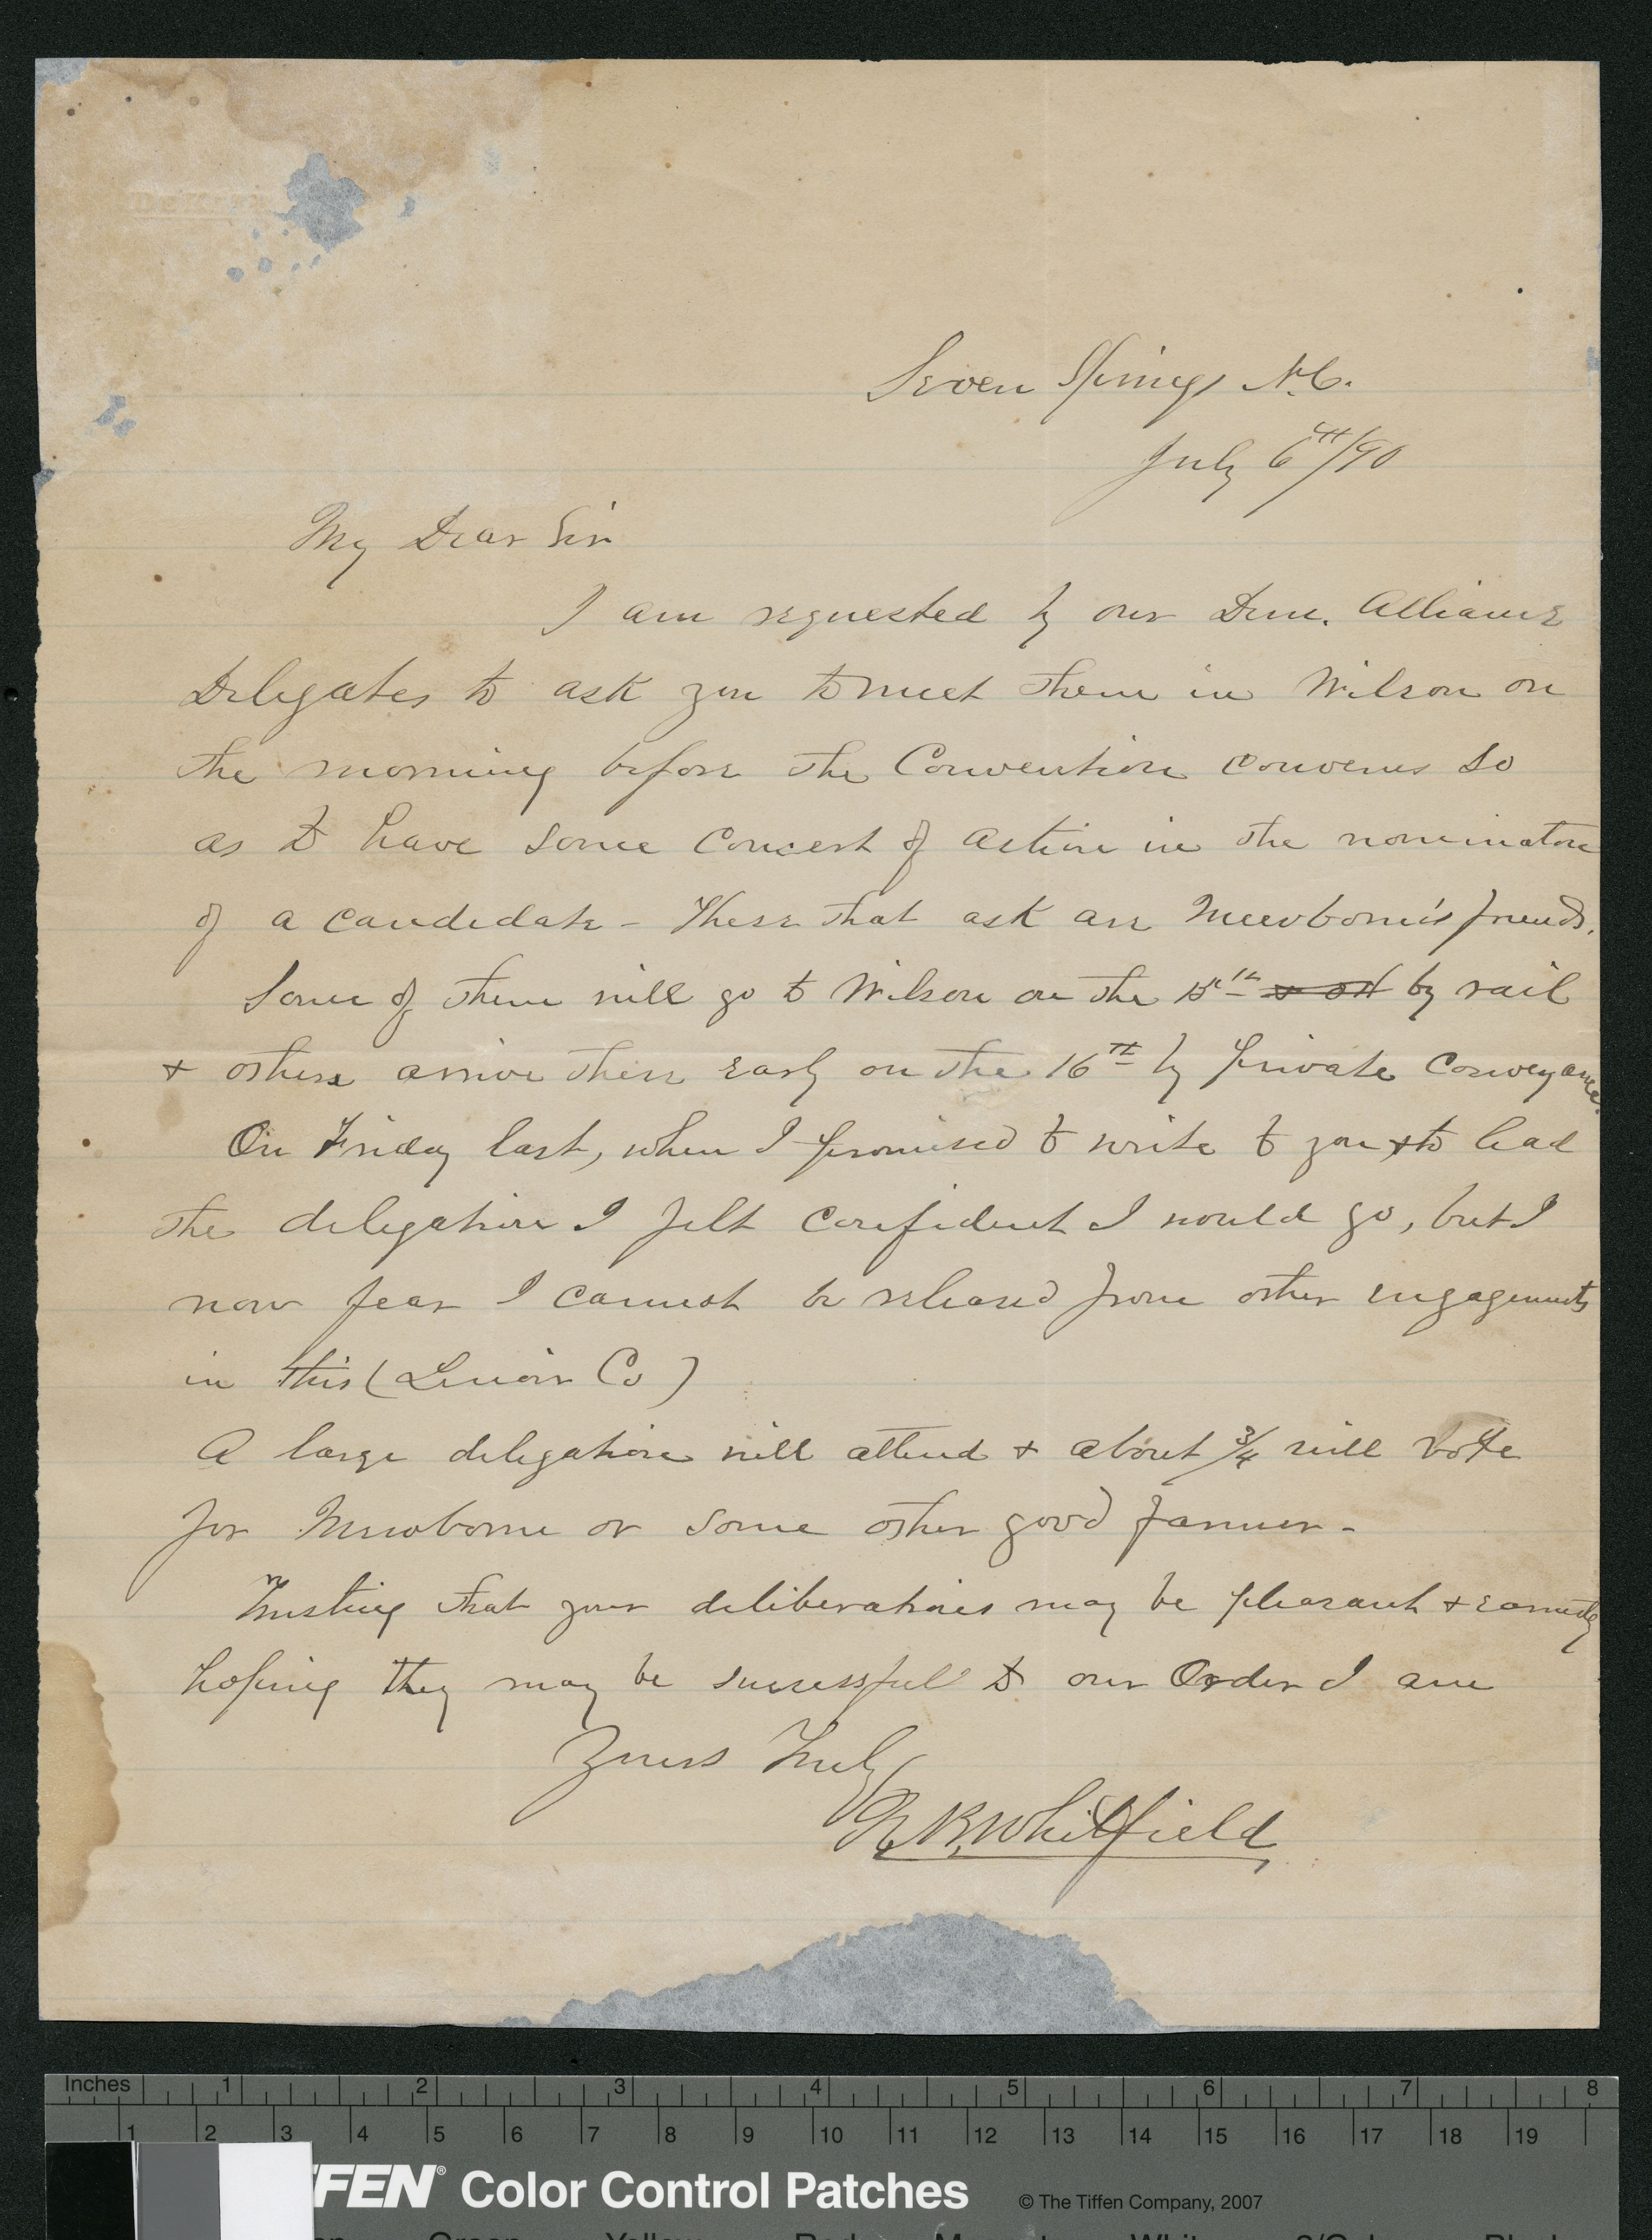 Seven Springs N.C.
July 6th/90
My Dear Sir
I am requested by our Dem. Alliance
Delegates to ask you to meet them in Wilson on
the morning before the Convention convenes so
as to have some concert of action in the nomination
of a candidate - These that ask are Mewborne's friends.
Some of them will go to Wilson on the 15th by rail
& others arrive there early on the 16th by private conveyance.
On Friday last, when I promised to write to you & to lead
the delegation I felt confident I would go, but I
now fear I cannot be released from other engagements
in this (Lenoir Co)
A large delegation will attend & about 3/4 will vote
for Mewborne or some other good farmer -
Trusting that your deliberations may be pleasant & earnestly
hoping they may be successful to our Order I am
Yours Truly
N. B. Whitfield
Inches 1 2 3 4 5 6 7 8
1 2 3 4 5 6 7 8 9 10 11 12 13 14 15 16 17 18 19
FFEN® Color Control Patches © The Tiffen Company, 2007